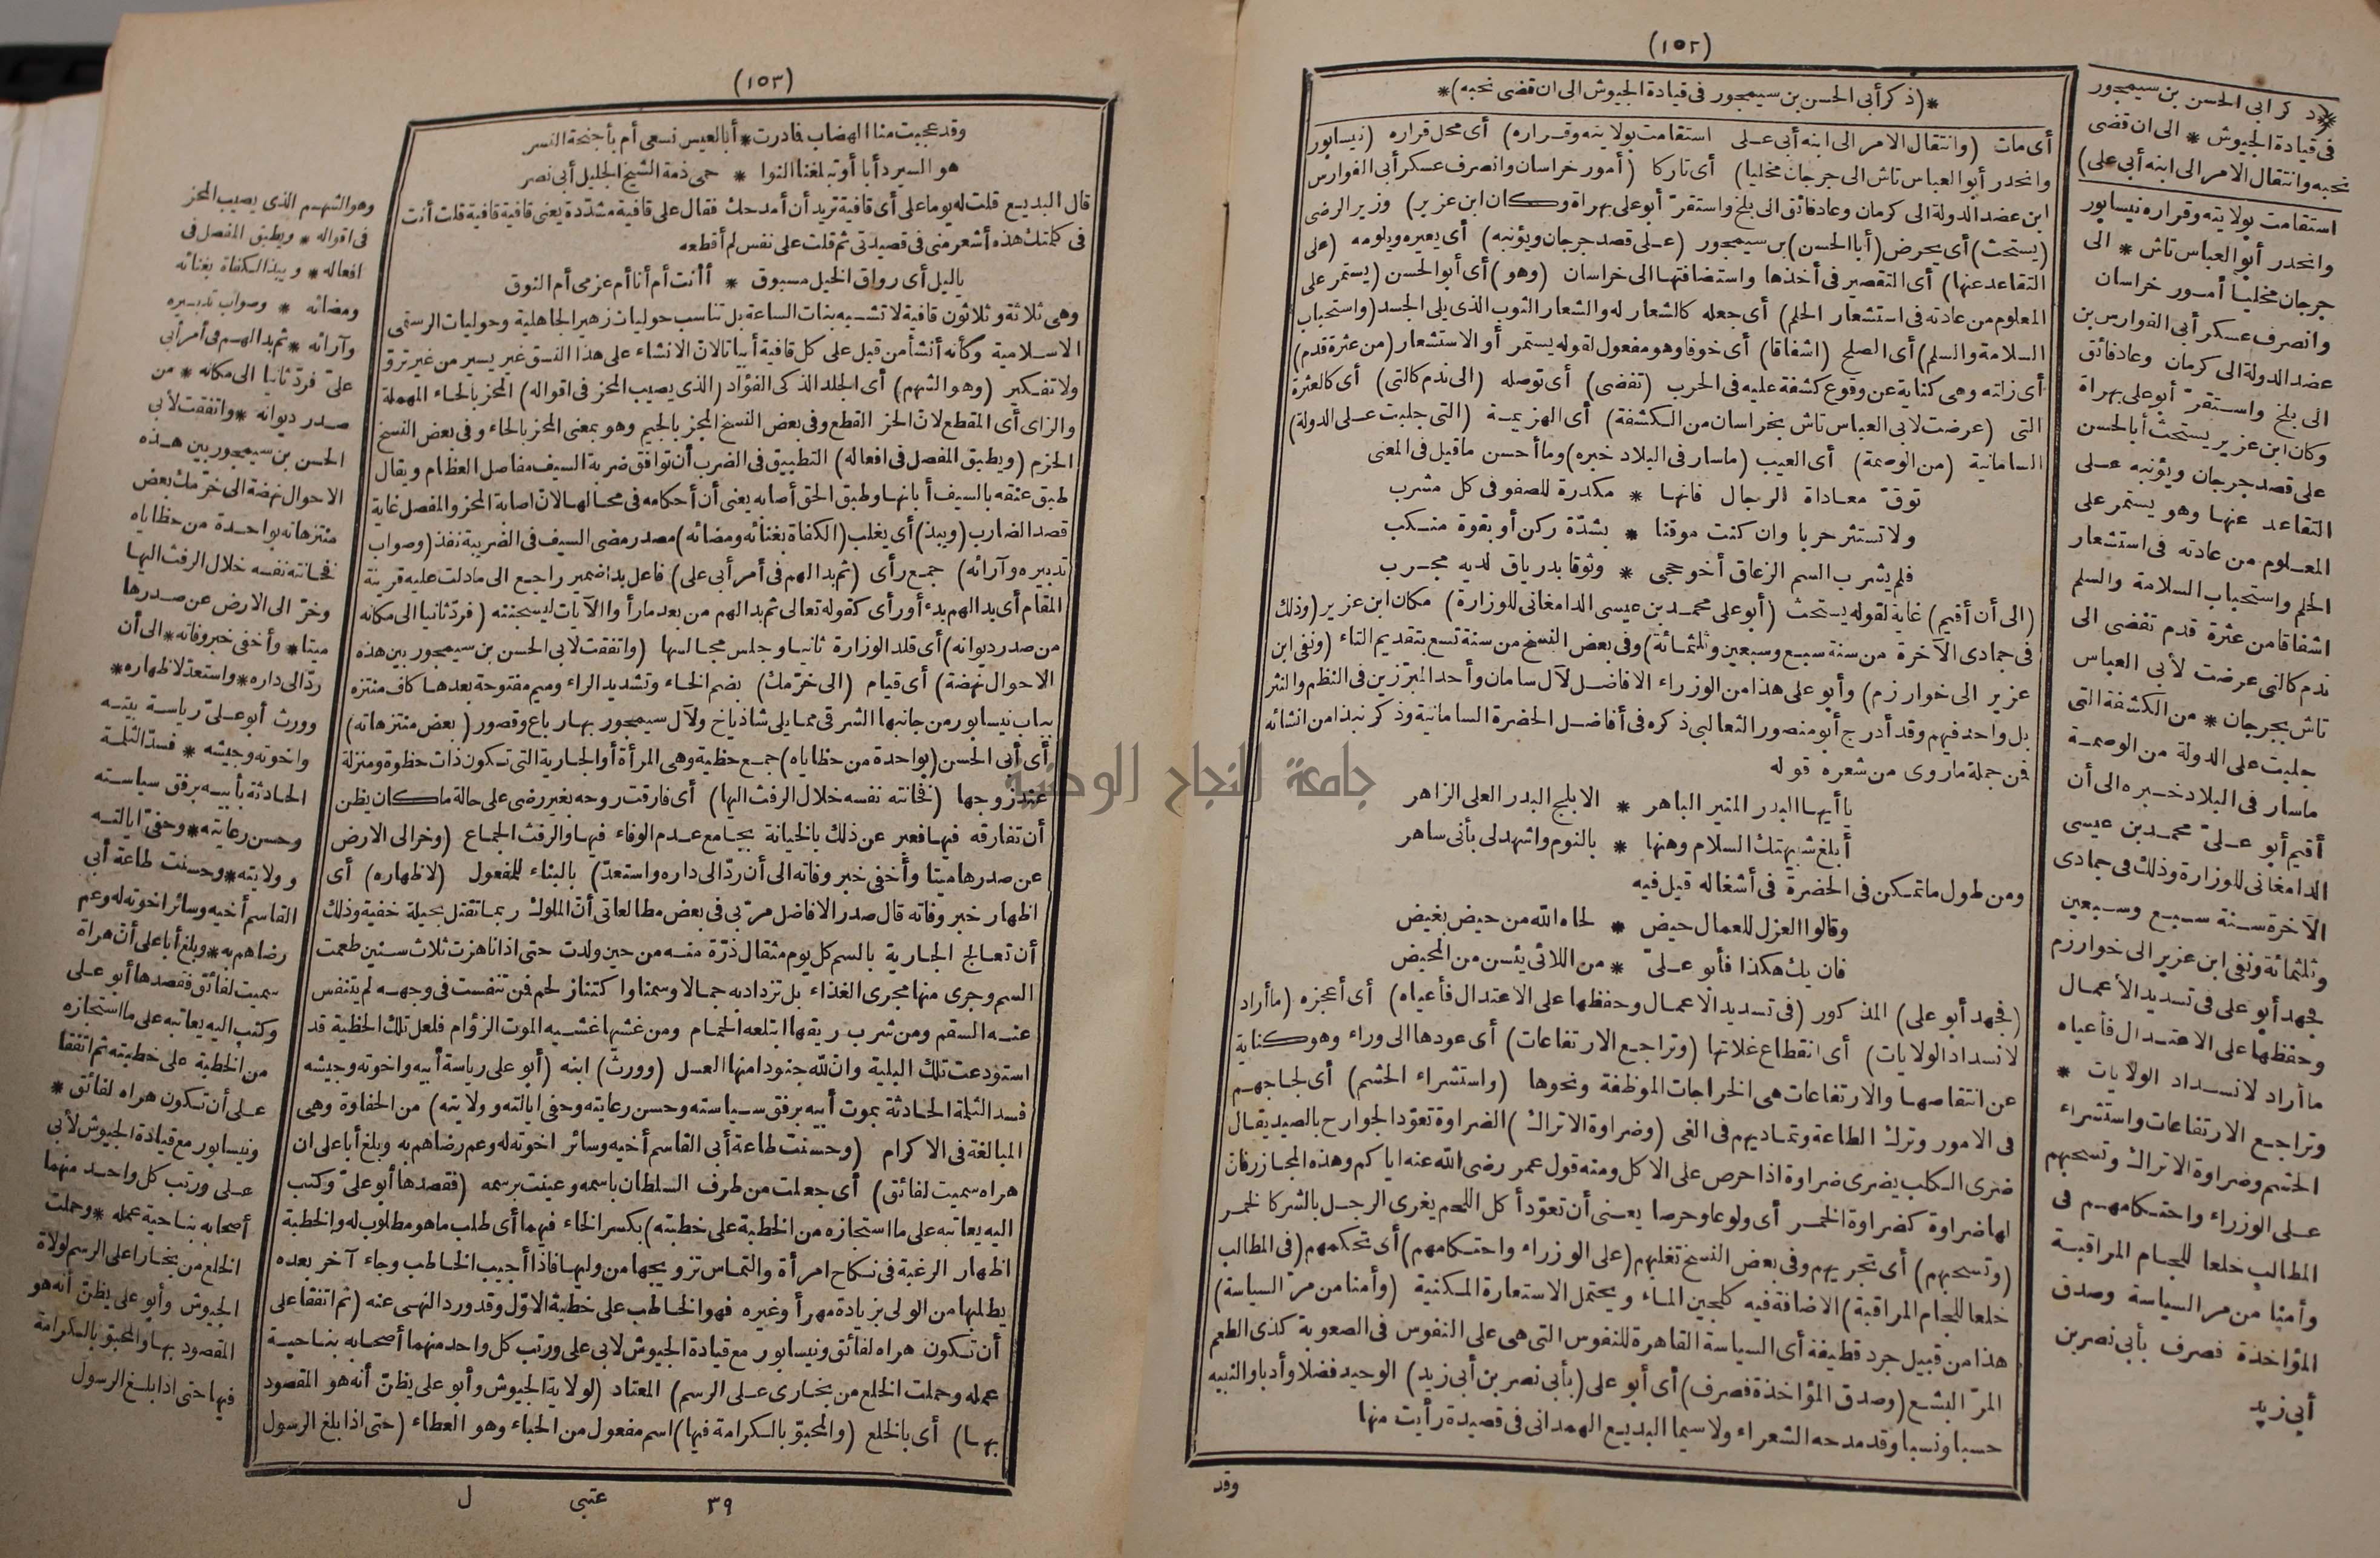 (١٥٢)
*(ذكر أبى الحسن بن سيمجور فى قيادة الجيوش الى ان قضى نحبه)*
أى مات (وانتقال الامر الى ابنه أبى عـلى استقامت بولايته وقـراره) أى محل قراره (نيسابور
وانحدر أبوالعباس تاش الى جرجان مخليا) أى تاركا (أمور خراسان وانصرف عسكر أبى الفوارس
ابن عضد الدولة الى كرمان وعاد فائق الى بلخ واستقرّ أبو على بهراة وكان ابن عزير) وزير الرضى
(يستحث) أى يحرض (أبا الحسن) بن سيمجور (عـلى قصد جرجان ويؤنبه) أى يعيره ويلومه (على
التقاعد عنها) أى التقصير فى أخذها واستضافتها الى خراسان (وهو) أى أبو الحسن (يستمر على
المعلوم من عادته فى استشعار الحلم) أى جعله كالشعار له والشعار الثوب الذى يلى الجسد (واستحباب
السلامة والسلم) أى الصلح (اشفاقا) أى خوفا وهو مفعول لقوله يستمر أو الاستشعار (من عثرة قدم)
أى زلته وهى كناية عن وقوع كشفة عليه فى الحرب (تفضى) أى توصله (الى ندم كالتى) أى كالعثرة
التى (عرضت لابى العباس تاش بخراسان من الكشفة) أى الهزيمـة (التى جلبت عـلى الدولة)
السامانية (من الوصمة) أى العيب (ماسار فى البلاد خبره) وما أحسن ماقيل فى المعنى
توقّ معاداة الرجال فانها * مكدرة للصفو فى كل مشرب
ولا تستثر حربا وان كنت موقنا * بشدّة ركن أو بقوة منكب
فلم يشرب السم الزعاق أخو حجى * وثوقا بدرياق لديه مجـرب
(الى أن أقيم) غاية لقوله يستحث (أبو على محمـد بن عيسى الدامغانى للوزارة) مكان ابن عزير (وذلك
فى جمادى الآخرة من سنة سبع وسبعين وثلثمائة) وفى بعض النسخ من سنة تسع بتقديم التاء (ونفى ابن
عزير الى خوارزم) وأبو على هذا من الوزراء الافاضل لآل سامان وأحد المبرّزين فى النظم والنثر
بل واحد فيهم وقد أدرج أبو منصور الثعالبى ذكره فى أفاضل الحضرة السامانية وذكر نبذا من انشائه
فمن جملة ماروى من شعره قوله
يا أيها البدر المنير الباهر * الابلج البدر العلى الزاهر
أبلغ شبيهتك السلام وهنها * بالنوم واشهد لى بأنى ساهر
ومن طول ماتمكن فى الحضرة فى أشغاله قيل فيه
وقالوا العزل للعمال حيض * لحاه الله من حيض بغيض
فان يك هكذا فأبو عـلىّ * من اللائى يئسن من المحيض
(فجهد أبو على) المذكور (فى تسديد الاعمال وحفظها على الاعتدال فأعياه) أى أعجزه (ماأراد
لانسداد الولايات) أى انقطاع غلاتها (وتراجـع الارتفاعات) أى عودها الى وراء وهو كناية
عن انتقاصها والارتفاعات هى الخراجات الموظفة ونحوها (واستشراء الحشم) أى لجاجهـم
فى الامور وترك الطاعة وتماديهم فى الغى (وضراوة الاتراك) الضراوة تعوّد الجوارح بالصيد يقال
ضرى الكلب يضرى ضراوة اذا حرص على الاكل ومنه قول عمر رضى الله عنه اياكم وهذه المجازر فان
لها ضراوة كضراوة الخمـر أى ولوعا وحرصا يعـنى أن تعوّد أكل اللحم يغرى الرجـل بالشر كالخمـر
(وتسحبهم) أى تجريهم وفى بعض النسخ تغلبهم (على الوزراء واحتـكامهم) أى تحكمهم (فى المطالب
خلعا للجام المراقبة) الاضافة فيه كلجين الماء ويحتمل الاستعارة المكنية (وأمنا من مرّ السياسة)
هذا من قبيل جرد قطيفة أى السياسة القاهرة للنفوس التى هى على النفوس فى الصعوبة كذى الطعم
المرّ البشـع (وصدق المؤاخذة فصرف) أى أبو على (بأبى نصر بن أبى زيد) الوحيد فضلا وأدبا والنبيه
حسبا ونسبا وقد مدحه الشعراء ولاسيما البديع الهمدانى فى قصيدة رأيت منها
وقد
*(ذكر أبى الحسن بن سيمجور
فى قيادة الجيوش * الى ان قضى
نحبه وانتقال الامر الى ابنه أبى على)
استقامت بولايته وقراره نيسابور
وانحدر أبو العباس تاش * الى
جرجان مخليا أمـور خراسان
وانصرف عسكر أبى الفوارس بن
عضد الدولة الى كرمان وعاد فائق
الى بلخ واسـتقرّ أبو على بهراة
وكان ابن عزير يستحثّ أبا الحسن
على قصد جرجان ويؤنبه عـلى
التقاعد عنها وهو يستمر على
المعـلوم من عادته فى استشعار
الحلم واستحباب السلامة والسلم
اشفاقا من عثرة قدم تفضى الى
ندم كالتى عرضت لأبى العباس
تاش بجرجان * من الكشفة التى
جلبت على الدولة من الوصمـة
ماسار فى البلاد خـبره الى أن
أقيم أبو عـلىّ محمـد بن عيسى
الدامغانى للوزارة وذلك فى جمادى
الآخرة سـنة سـبع وسـبعين
وثلثمائة ونفى ابن عزير الى خوارزم
فجهد أبو على فى تسديد الأعمـال
وحفظها على الاعتـدال فأعياه
ماأراد لانسـداد الولايات *
وتراجـع الارتفاعات واستشراء
الحشم وضراوة الاتراك وتسحبهم
عـلى الوزراء واحتـكامهـم فى
المطالب خلعا للجـام المراقبـة
وأمنا من مر السياسة وصدق
المؤاخذة فصرف بأبى نصر بن
أبى زيد
(١٥٣)
وقد عجبت منا الهضاب فادرت * أبا لعيس نسعى أم بأجنحة النسر
هو السير دأبا أو تبلغنا النوا * حمى ذمة الشيخ الجليل أبى نصر
قال البديـع قلت له يوما على أى قافية تريد أن أمدحك فقال على قافية مشدّدة يعنى قافية قافية قلت أنت
فى كلمتك هذه أشعر منى فى قصيدتى ثم قلت على نفس لم أقطعه
ياليل أى رواق الخيل مسبوق * أأنت أم أنا أم عزمى أم النوق
وهى ثلاثة وثلاثون قافية لا تشـبه بنات الساعة بل تناسب حوليات زهير الجاهلية وحوليات الرستمى
الاسـلامية وكأنه أنشأ من قبل على كل قافية أبياتا لان الانشاء على هذا النسق غير يسير من غير تروّ
ولا تفـكير (وهو الشهم) أى الجلد الذكى الفؤاد (الذى يصيب المحز فى اقواله) المحز بالحاء المهملة
والزاى أى المقطع لان الحز القطع وفى بعض النسخ المجز بالجيم وهو بمعنى المحز بالحاء وفى بعض النسخ
الحزم (ويطبق المفصل فى افعاله) التطبيق فى الضرب أن توافق ضربة السيف مفاصل العظام ويقال
طبق عنقه بالسيف أبانها وطبق الحق أصابه يعنى أن أحكامه فى محالها لان اصابة المحز والمفصل غاية
قصد الضارب (ويبذ) أى يغلب (الكفاة بغنائه ومضائه) مصدر مضى السيف فى الضريبة نفذ (وصواب
تدبيره وآرائه) جمـع رأى (ثم بدا لهم فى أمر أبى على) فاعل بدا ضمير راجـع الى مادلت عليه قرينة
المقام أى بدا لهم بدء أو رأى كقوله تعالى ثم بدا لهم من بعد مارأوا الآيات ليسجننه (فردّ ثانيا الى مكانه
من صدر ديوانه) أى قلد الوزارة ثانيا وجلس مجالسها (واتفقت لابى الحسن بن سيمجور بين هذه
الاحوال نهضة) أى قيام (الى خرّمك) بضم الخاء وتشديد الراء وميم مفتوحة بعدها كاف منتزه
بباب نيسابور من جانبها الشرقى مما يلى شاذياخ ولآل سيمجور بها رباع وقصور (بعض منتزهاته)
أى أبى الحسن (بواحدة من حظاياه) جمـع حظية وهى المرأة أو الجارية التى تكون ذات حظوة ومنزلة
عند زوجها (فخانته نفسه خلال الرفث اليها) أى فارقت روحه بغير رضى على حالة ماكان يظن
أن تفارقه فيها فعبر عن ذلك بالخيانة بجامع عـدم الوفاء فيها والرفث الجماع (وخر الى الارض
عن صدرها ميتا وأخفى خبر وفاته الى أن ردّ الى داره واستعدّ) بالبناء للمفعول (لاظهاره) أى
اظهار خبر وفاته قال صدر الافاضل مرّ بى فى بعض مطالعاتى أن الملوك ربما تقتل بحيلة خفية وذلك
أن تعـالج الجارية بالسم كل يوم مثقال ذرّة منـه من حين ولدت حتى اذا ناهزت ثلاث سـنين طعمت
السم وجرى منها مجرى الغذاء بل تزداد به جمالا وسمنا واكتناز لحم فمن تنفست فى وجهـه لم يتنفس
عنـه السقم ومن شرب ريقها ابتلعه الحمام ومن غشيها غشـيه الموت الزؤام فلعل تلك الحظية قد
استودعت تلك البلية وان لله جنودا منها العسل (وورث) ابنه (أبو على رياسة أبيه واخوته وجيشه
فسد الثلة الحادثة بموت أبيه برفق سـياسته وحسن رعايته وحفى ايالته وولايته) من الحفاوة وهى
المبالغة فى الاكرام (وحسنت طاعة أبى القاسم أخيه وسائر اخوته له وعم رضاهم به وبلغ أبا على ان
هراه سميت لفائق) أى جعلت من طرف السلطان باسمه وعينت برسمه (فقصدها أبو علىّ وكتب
اليه يعاتبه على مااستجازه من الخطبة على خطبته) بكسر الخاء فيهما أى طلب ماهو مطلوب له والخطبة
اظهار الرغبة فى نكاح امرأة والتماس تزويجها من وليها فاذا أجيب الخاطب وجاء آخر بعده
يطلبها من الولى بزيادة مهر أو غيره فهو الخاطب على خطبة الاوّل وقد ورد النهـى عنه (ثم اتفقا على
أن تكون هراه لفائق ونيسابور مع قيادة الجيوش لابى على ورتب كل واحد منهما أصحابه بناحيـة
عمله وحملت الخلع من بخارى عـلى الرسم) المعتاد (لولاية الجيوش وأبو على يظنّ أنه هو المقصود
بهـا) أى بالخلع (والمحبوّ بالكرامة فيها) اسم مفعول من الحباء وهو العطاء (حتى اذا بلغ الرسول
٣٩ عتبى ل
وهو الشهـم الذى يصيب المحز
فى اقواله * ويطبق المفصل فى
افعاله * ويبذ الكفاة بغنائه
ومضائه * وصواب تدبـيره
وآرائه * ثم بدا لهـم فى أمر أبى
علىّ فردّ ثانيا الى مكانه * من
صـدر ديوانه * واتفقت لأبى
الحسن بن سيمجور بين هـذه
الاحوال نهضة الى خرّمك بعض
منتزهاته بواحـدة من حظاياه
فخانته نفسه خلال الرفث اليها
وخرّ الى الارض عن صـدرها
ميتا * وأخفى خبر وفاته * الى أن
ردّ الى داره * واستعدّ لاظهاره *
وورث أبو عـلىّ رياسـة بيتـه
واخوته وجيشه * فسدّ الثلـة
الحـادثة بأبيـه برفق سياسـته
وحسن رعايته * وحفىّ ايالتـه
وولايته * وحسنت طاعة أبى
القاسم أخيه وسائر اخوته له وعم
رضاهم به * وبلغ أبا على أن هراة
سميت لفائق فقصدها أبو عـلى
وكتب اليه يعاتبه على مااستجازه
من الخطبة على خطبته ثم اتفقا
عـلى أن تـكون هراه لفائق *
ونيسابور مع قيادة الجيوش لأبى
عـلى ورتب كل واحـد منهما
أصحابه بناحية عمله * وحملت
الخلع من بخارا على الرسم لولاة
الجيوش وأبو على يظنّ أنه هو
المقصود بها والمحبوّ بالكرامة
فيها حتى اذا بلـغ الرسول
جامعة النجاح الوطنية